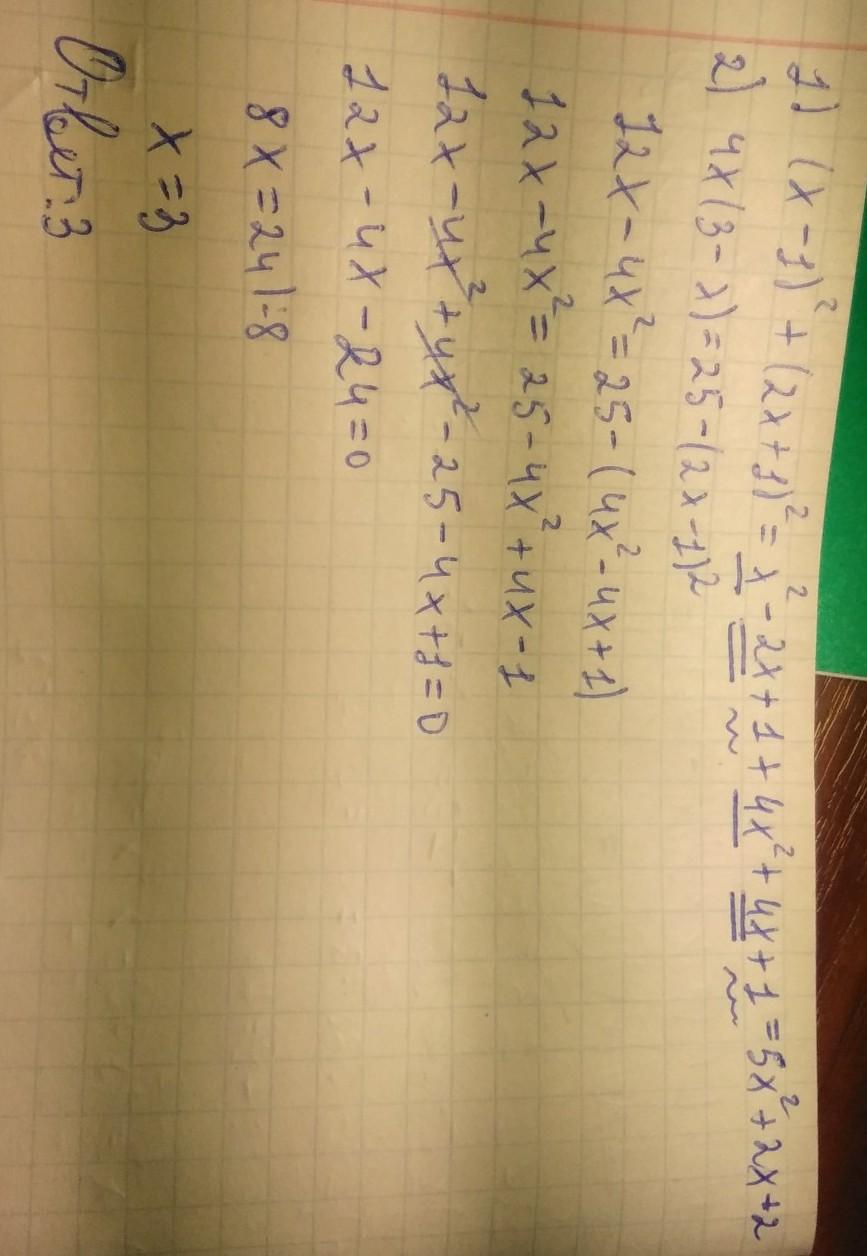 1) (x-1)² + (2x+1)² = x² - 2x + 1 + 4x² + 4x + 1 = 5x² + 2x + 2
2) 4x(3-x) = 25 - (2x-1)²
12x - 4x² = 25 - (4x² - 4x + 1)
12x - 4x² = 25 - 4x² + 4x - 1
12x - 4x² + 4x² - 25 - 4x + 1 = 0
12x - 4x - 24 = 0
8x = 24 |:8
x = 3
Ответ: 3